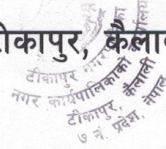 टीकापुर, कैलाली
टीकापुर नगर
नगर कार्यपालिकाको कार्यालय
टीकापुर, कैलाली
७ नं. प्रदेश, नेपाल